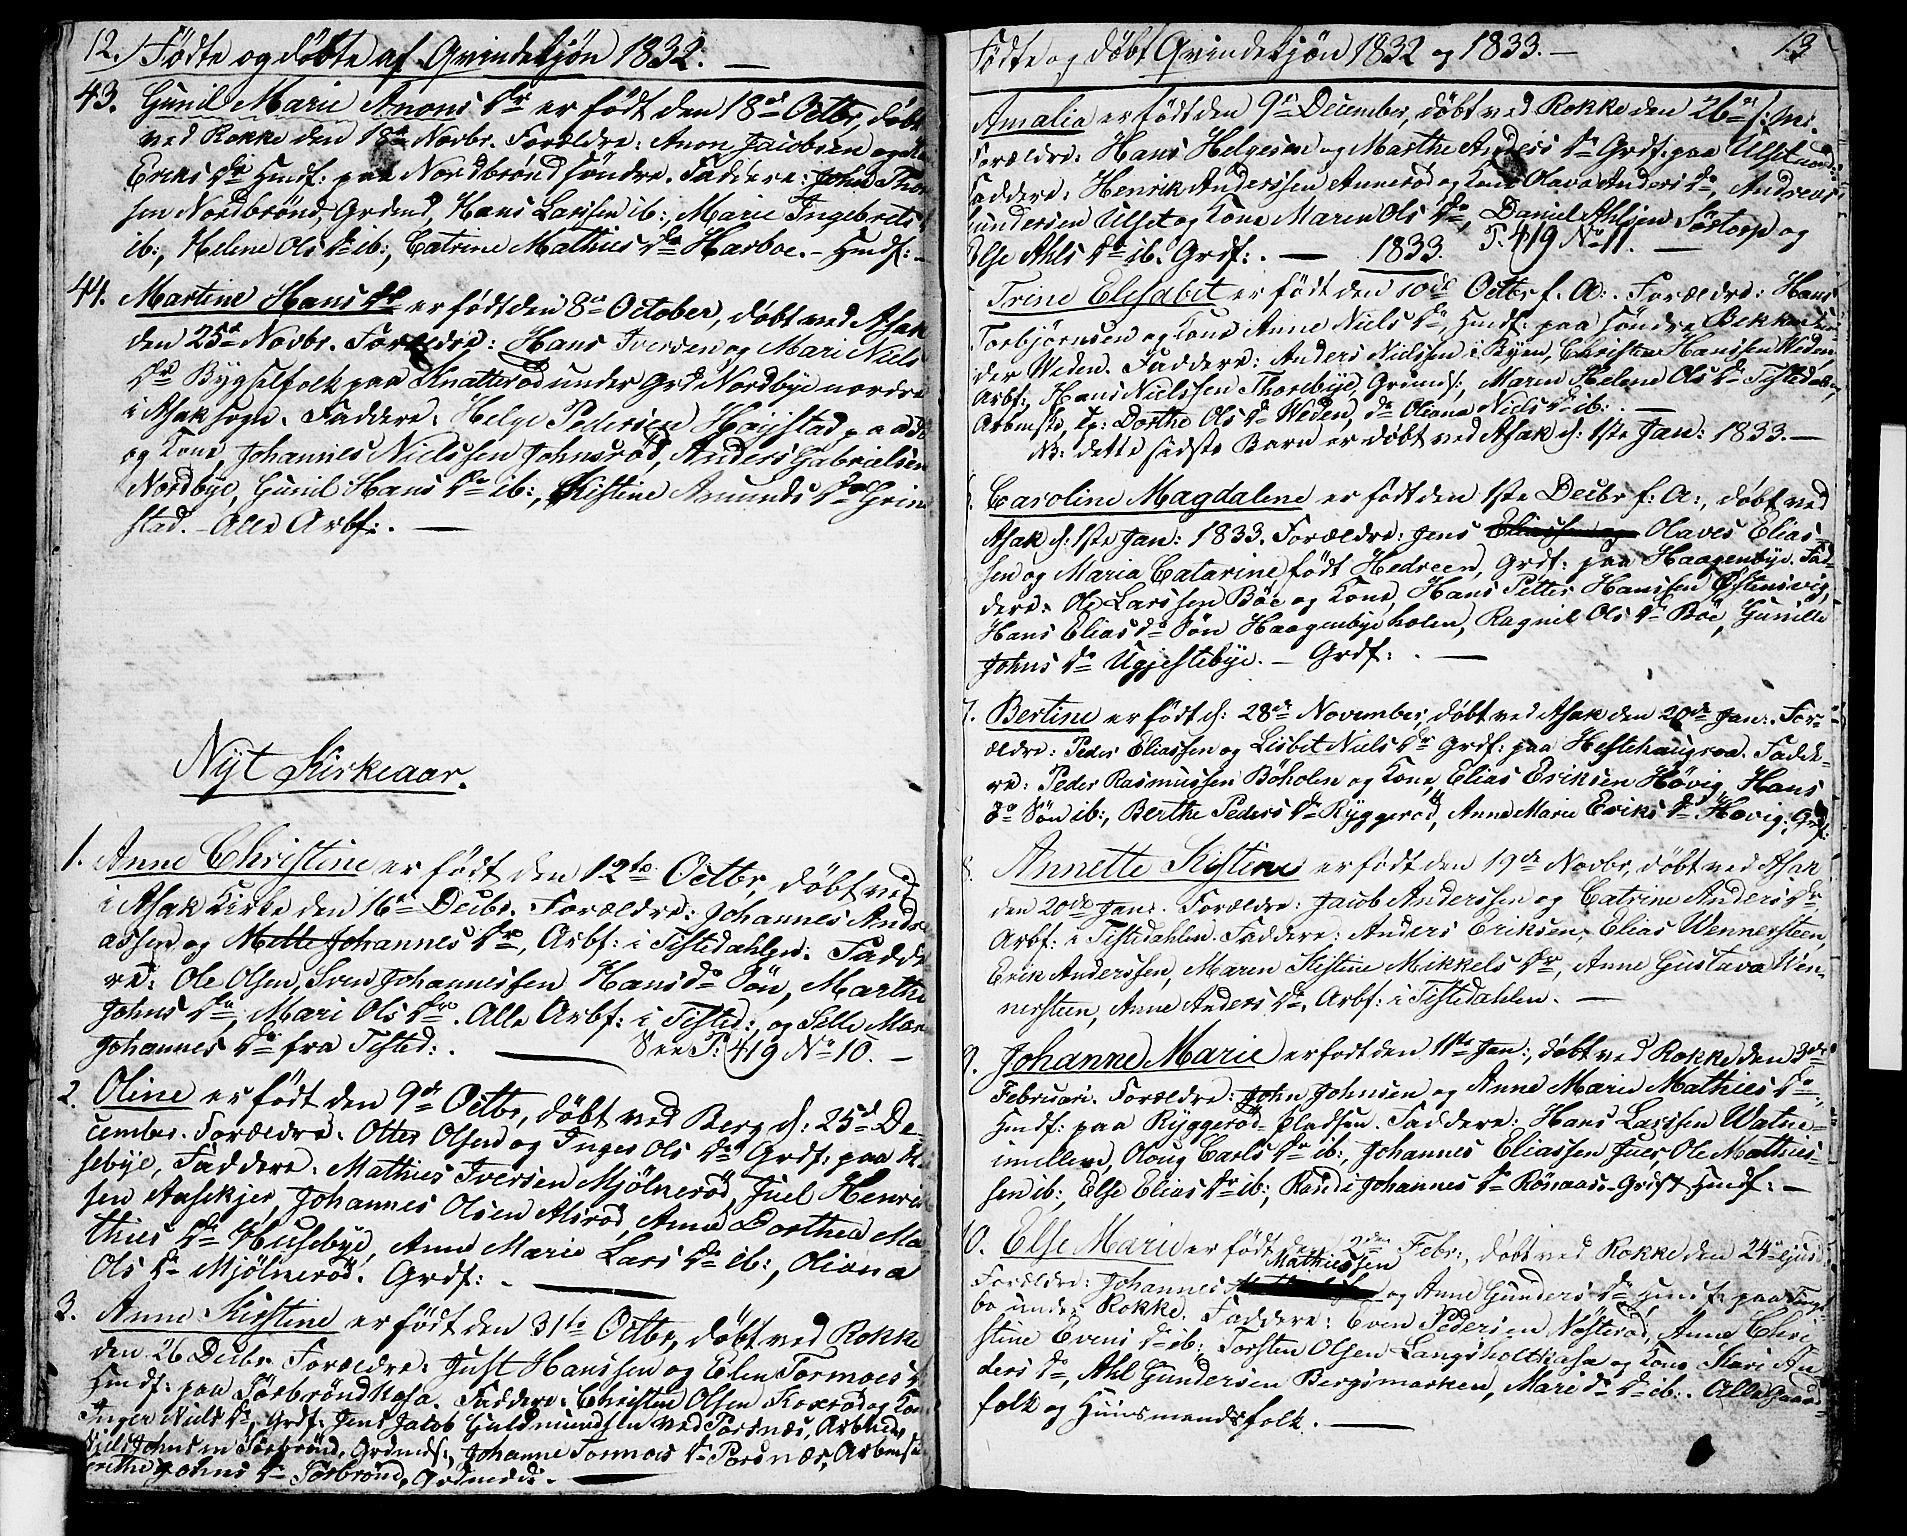 12.) Fødte og døbte af Qvindekjøn 1832. —
43. Gunil Marie Anons Dr er født den 18de Octbr, døbt
ved Rokke den 18de Novbr. Forældre: Anon Jacobsen og
Eriks Dr Hmdf: paa Nordbrønd søndre. Faddere: John Thor
sen Nordbrønd, Grdmd, Hans Larssen ib:, Marie Ingebrets
ib:, Helene Ols Dr ib:, Catrine Mathies Dr Harboe. - Hmdf: -
44. Martine Hans Dr er født den 8de October, døbt ved Asak
den 25de Novbr. Forældre: Hans Iversen og Mari Niels
Dr Bygselfolk paa Knatterød under Grd Nordbye nordre
i Asak sogn. Faddere: Helge Pedersen Høystad
og Kone Johannes Nielssen Johnsrød, Anders Gabrielsen
Nordbye, Gunil Hans Dr ib:, Kistine Amunds Dr Grim
stad. - Alle Arbf: . —
Nyt Kirkeaar.
1. Anne Christine er født den 12te Octbr, døbt ved
i Asak Kirke den 16de Decbr. Forældre: Johannes Andre
assen og Mette Johannes Dr, Arbf: i Tistedahlen. Fadde
re: Ole Olsen, Sven Johannessen Hans do Søn, Marthe
Johns Dr, Mari Ols Dr. Alle Arbf: i Tisted:, og Sille Mar
Johannes Dr fra Tisted: . — See P: 419 No 10. -
2. Oline er født den 9de Octbr, døbt ved Berg d: 25de De-
cember. Forældre: Otter Olsen og Inger Ols Dr Grdf: paa Hu
sebye, Faddere: Mathies Iversen Mjølnerød, Juel Henrik
sen Aasekjer, Johannes Olsen Alsrød, Anne Dorthea Ma-
thies Dr Husebye, Anne Marie Lars Dr ib:, Oliana
Ols Dr Mjølnerød. Grdf: . —
3. Anne Kirstine er født den 31te Octbr, døbt ved Rokke
den 26 Decbr. Forældre: Just Hanssen og Elen Tormoes
Hmdf: paa Torbrøndkasa. Faddere: Christen Olsen Koxrød og Kone
Inger Niels Dr, Grdf: Jens Jacob Guldmundsen ved Torsnæs, Arbmd,
Niels Johnsen Torbrønd, Grdmds:, Johanne Tormoes Dr Torsnæs, Arbmds
Grethe Johns Dr Torbrønd, Grdmds: . —
Fødte og døbt Qvindekjøn 1832 og 1833. — 13
Amalia er født den 9de December, døbt ved Rokke den 26de s: M:.
Forældre: Hans Helgesen og Marthe Anders Dr Grdf: paa Ulset
Faddere: Henrik Anderssen Annerød og Kone Olava Anders Dr, Andreas
Gundersen Ulset og Kone Maren Ols Dr, Daniel Ahlsen Sørtorp og
Else Ahls Dr ib: Grdf: . — 1833. P: 419 No 11. —
Trine Elisabet er født den 10de Octbr f: A: . Forældre: Hans
Torbjørnsen og Kone Anne Niels Dr, Hmdf: paa søndre Bekke un
der Weden. Faddere: Anders Nielsen i Byen, Christen Hanssen Weden,
Arbf:, Hans Nielssen Thorebye, Grdmds:, Maren Helene Ols Dr Tistedalen,
Arbmds, Ep: Dorthe Ols Dr Weden, do Oliana Niels Dr ib: . —
NB: dette sidste Barn er døbt ved Asak d: 1ste Jan: 1833. —
Caroline Magdalene er født den 1ste Decbr f: A:, døbt ved
Asak d: 1ste Jan: 1833. Forældre: Jens Olaves Elias-
sen og Maria Catarine født Hedreen, Grdf: paa Haagenbye. Fad-
dere: Ole Larssen Bøe og Kone, Hans Petter Hanssen Østensvig,
Hans Elias do Søn Haagenbyeholen, Ragnil Ols Dr Bøe, Gunille
Johns Dr Ugjestebye. — Grdf: . —
7. Bertine er født d: 28de November, døbt ved Asak den 20de Jan: . For-
ældre: Peder Eliassen og Lisbet Niels Dr Grdf: paa Hestehaugroa. Fadde-
re: Peder Rasmussen Bøholen og Kone, Elias Eriksen Høvig, Hans
do Søn ib:, Berthe Peders Dr Ryggerød, Anne Marie Eriks Dr Høvig. Grdf:
8. Annette Kistine er født den 19de Novbr, døbt ved Asak
den 20de Jan: . Forældre: Jacob Anderssen og Catrine Anders Dr
Arbf: i Tistedahlen. Faddere: Anders Eriksen, Elias Wennersteen,
Erik Anderssen, Maren Kistine Mikkels Dr, Anne Gustava Wen-
nersteen, Anne Anders Dr. Arbf: i Tistedahlen. —
9. Johanne Marie er født den 11te Jan:, døbt ved Rokke den 3de
Februari. Forældre: John Johnsen og Anne Marie Mathies Dr,
Hmdf: paa Ryggerød-Pladsen. Faddere: Hans Larssen Watne-
imellem, Oloug Carls Dr ib:, Johannes Eliassen Juer, Ole Mathies-
sen ib:, Else Elias Dr ib:, Randi Johannes Dr Rønaas. Grdf Hmdf: —
10. Else Marie er født den 2den Febr:, døbt ved Rokke den 24de ejusd:
Forældre: Johannes Mathiessen og Anne Gunders Dr Hmdf: paa
bo under Rokke. Faddere: Even Pedersen Nøsterød, Anne Chri
stine Evens Dr ib:, Torsten Olsen Langsholtkasa og Kone Kari An
ders Dr, Ahl Gundersen Bergsmarken, Mari do Dr ib: . Alle Gaard-
folk og Huusmandsfolk. —